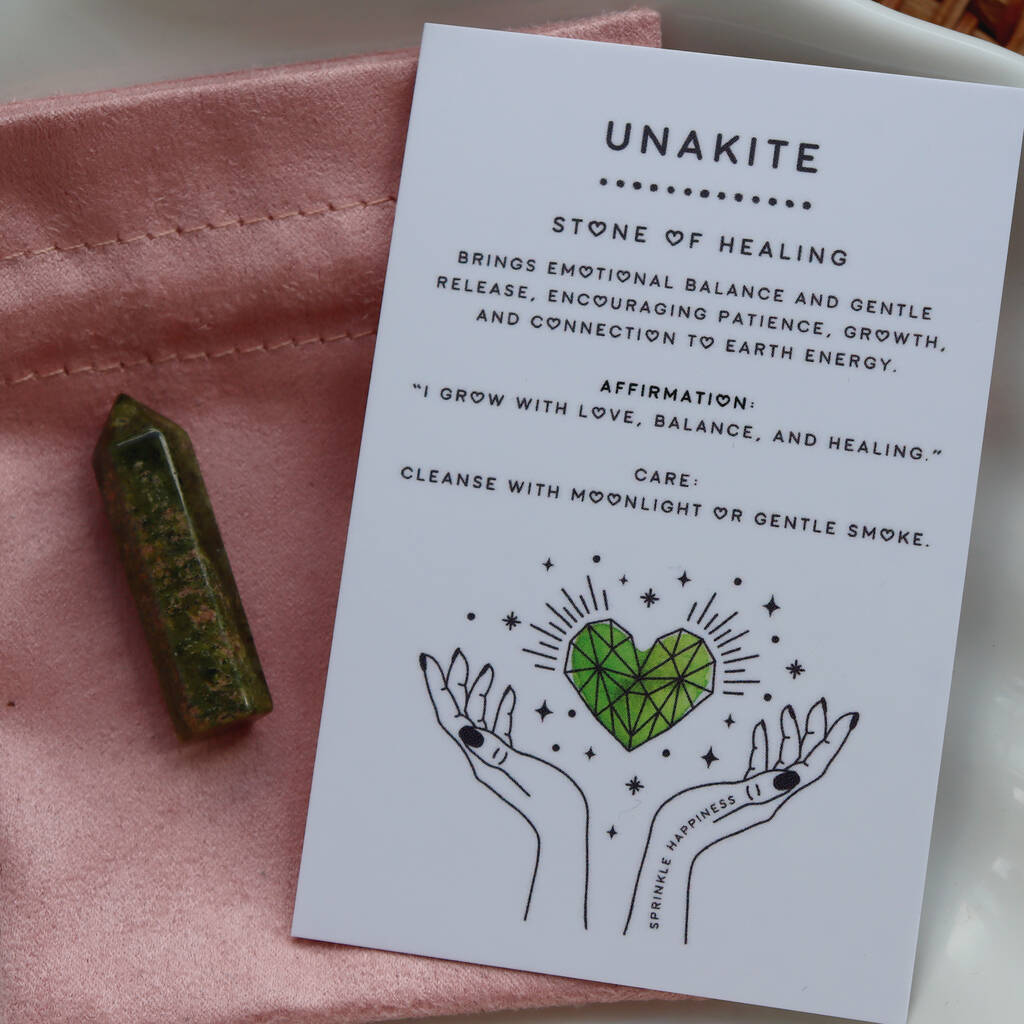 UNAKITE
STONE OF HEALING
BRINGS EMOTIONAL BALANCE AND GENTLE
RELEASE, ENCOURAGING PATIENCE, GROWTH,
AND CONNECTION TO EARTH ENERGY.
AFFIRMATION:
"I GROW WITH LOVE, BALANCE, AND HEALING."
CARE:
CLEANSE WITH MOONLIGHT OR GENTLE SMOKE.
SPRINKLE HAPPINESS